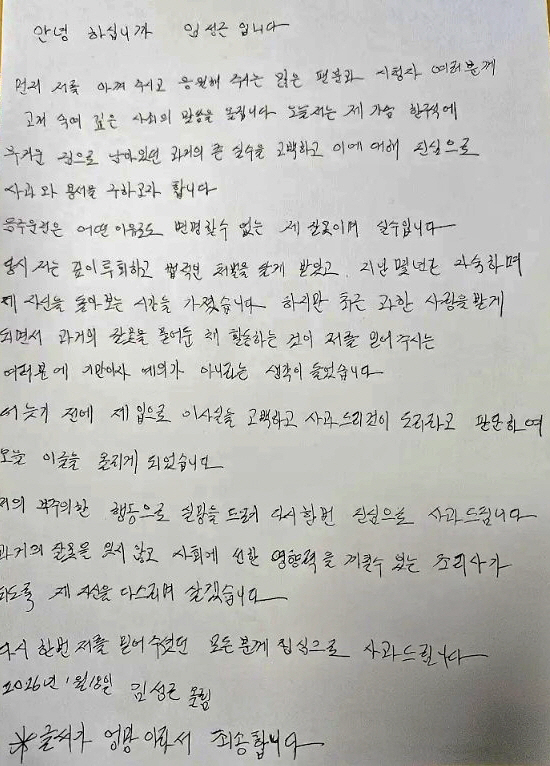 안녕 하십니까 임성근 입니다
먼저 저를 아껴 주시고 응원해 주시는 많은 팬분과 시청자 여러분께
고개 숙여 깊은 사죄의 말씀을 올립니다 오늘 저는 제 가슴 한구석에
무거운 짐으로 남아있던 과거의 큰 실수를 고백하고 이에 대해 진심으로
사과와 용서를 구하고자 합니다
음주운전은 어떤 이유로도 변명할 수 없는 제 잘못이며 실수입니다
당시 저는 깊이 후회하고 법적인 처벌을 달게 받았고, 지난 몇년간 자숙하며
제 자신을 돌아보는 시간을 가졌습니다 하지만 최근 과한 사랑을 받게
되면서 과거의 잘못을 묻어둔 채 활동하는 것이 저를 믿어 주시는
여러분에 기만이자 예의가 아니라는 생각이 들었습니다
더 늦기 전에 제 입으로 이사실을 고백하고 사과드리것이 도리라고 판단하여
오늘 이글을 올리게 되었습니다
저의 부주의한 행동으로 실망을 드려 다시한번 진심으로 사과드립니다
과거의 잘못을 잊지 않고 사회에 선한 영향력을 끼칠수 있는 조리사가
되도록 제 자신을 다스리며 살겠습니다
다시 한번 저를 믿어 주셨던 모든 분께 진심으로 사과드립니다
2026년 1월 18일 임성근 올림
※글씨가 엉망 이라서 죄송합니다